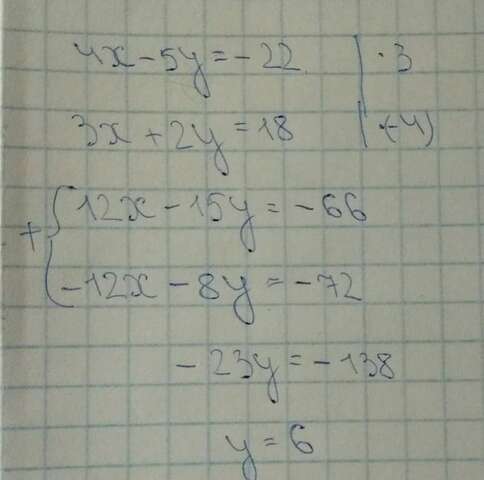 4x - 5y = -22 | · 3
3x + 2y = 18 | · (-4)
+ { 12x - 15y = -66
-12x - 8y = -72
-23y = -138
y = 6